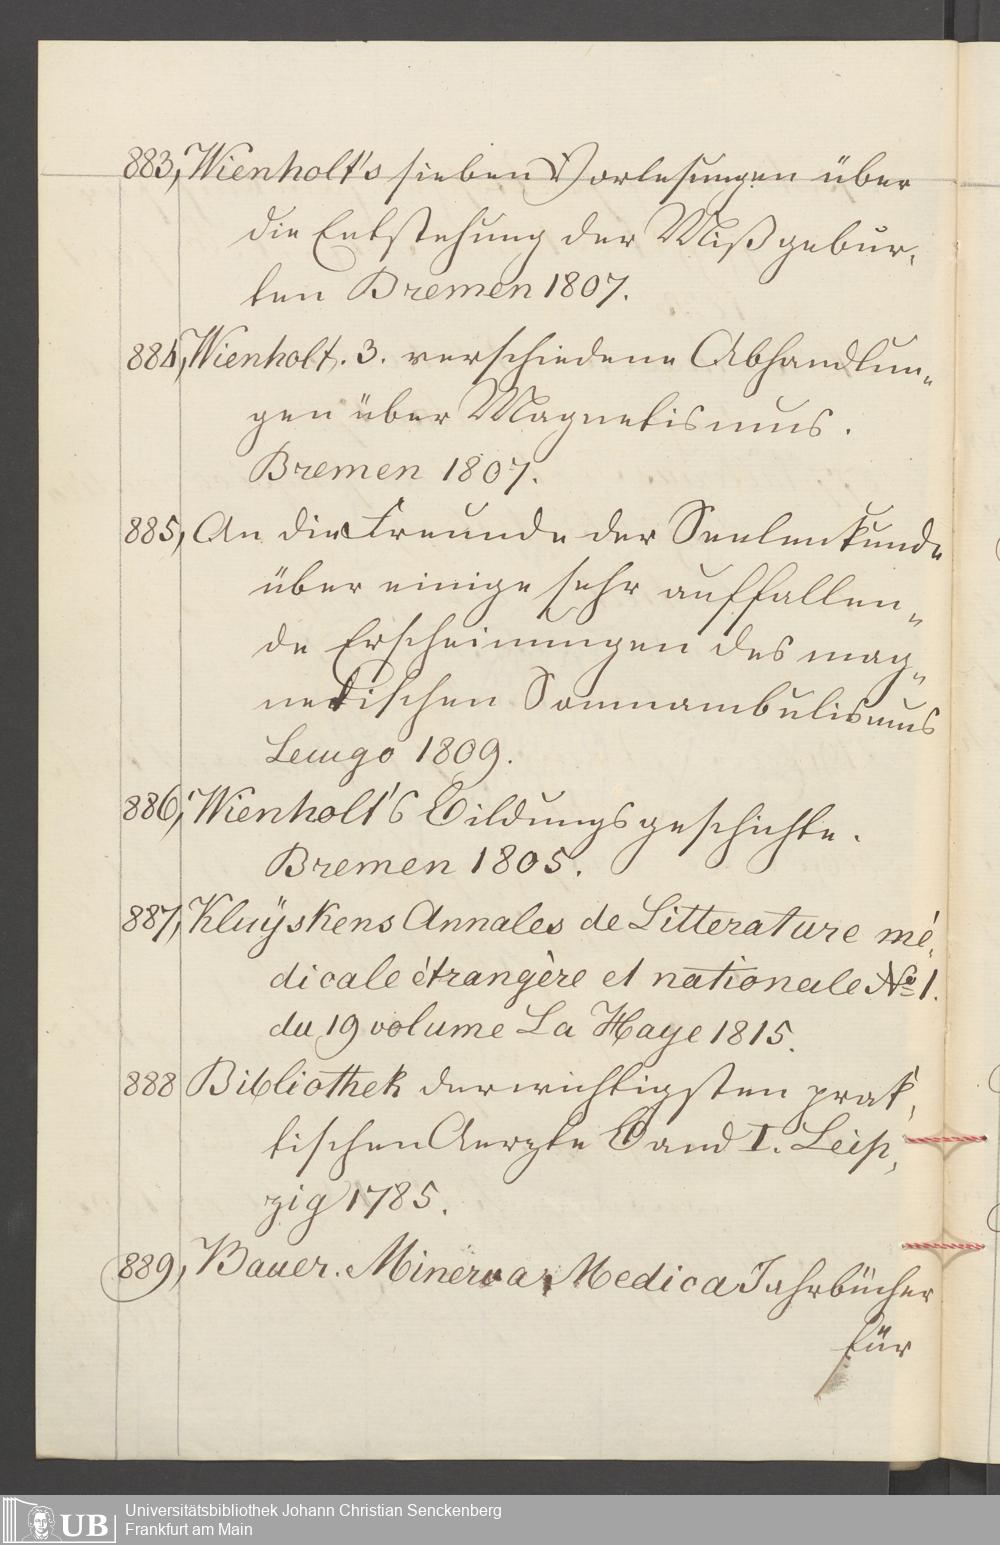 883, Wienholt's sieben Vorlesungen über
die Entstehung der Mißgebur,
ten Bremen 1807.
884, Wienholt. 3. verschiedene Abhandlun„
gen über Magnetismus.
Bremen 1807.
885, An die Freunde der Seelenkunde
über einige sehr auffallen„
de Erscheinungen des mag„
netischen Somnambulismus
Lemgo 1809.
886, Wienholt's Bildungsgeschichte.
Bremen 1805.
887, Kluÿskens Annales de Litterature mé,
dicale ètrangère et nationale No 1.
du 19 volume La Haye 1815.
888 Bibliothek der wichtigsten prak,
tischen Aerzte Band I. Leip,
zig 1785.
889, Bauer. Minerva Medica Jahrbücher
für
UB
Universitätsbibliothek Johann Christian Senckenberg
Frankfurt am Main